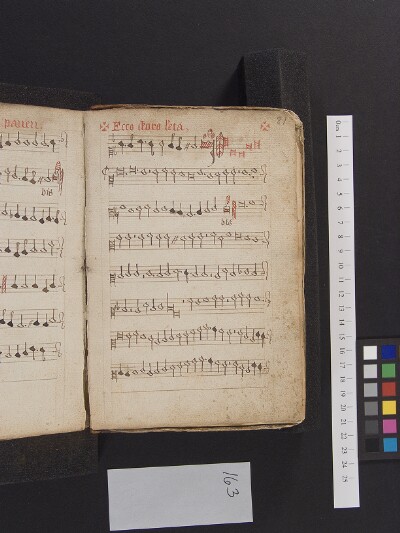 ✠ Ecco d'oro l'eta. ✠
bis
bis
163
0cm 1 2 3 4 5 6 7 8 9 10 11 12 13 14 15 16 17 18 19 20 21 22 23 24 25